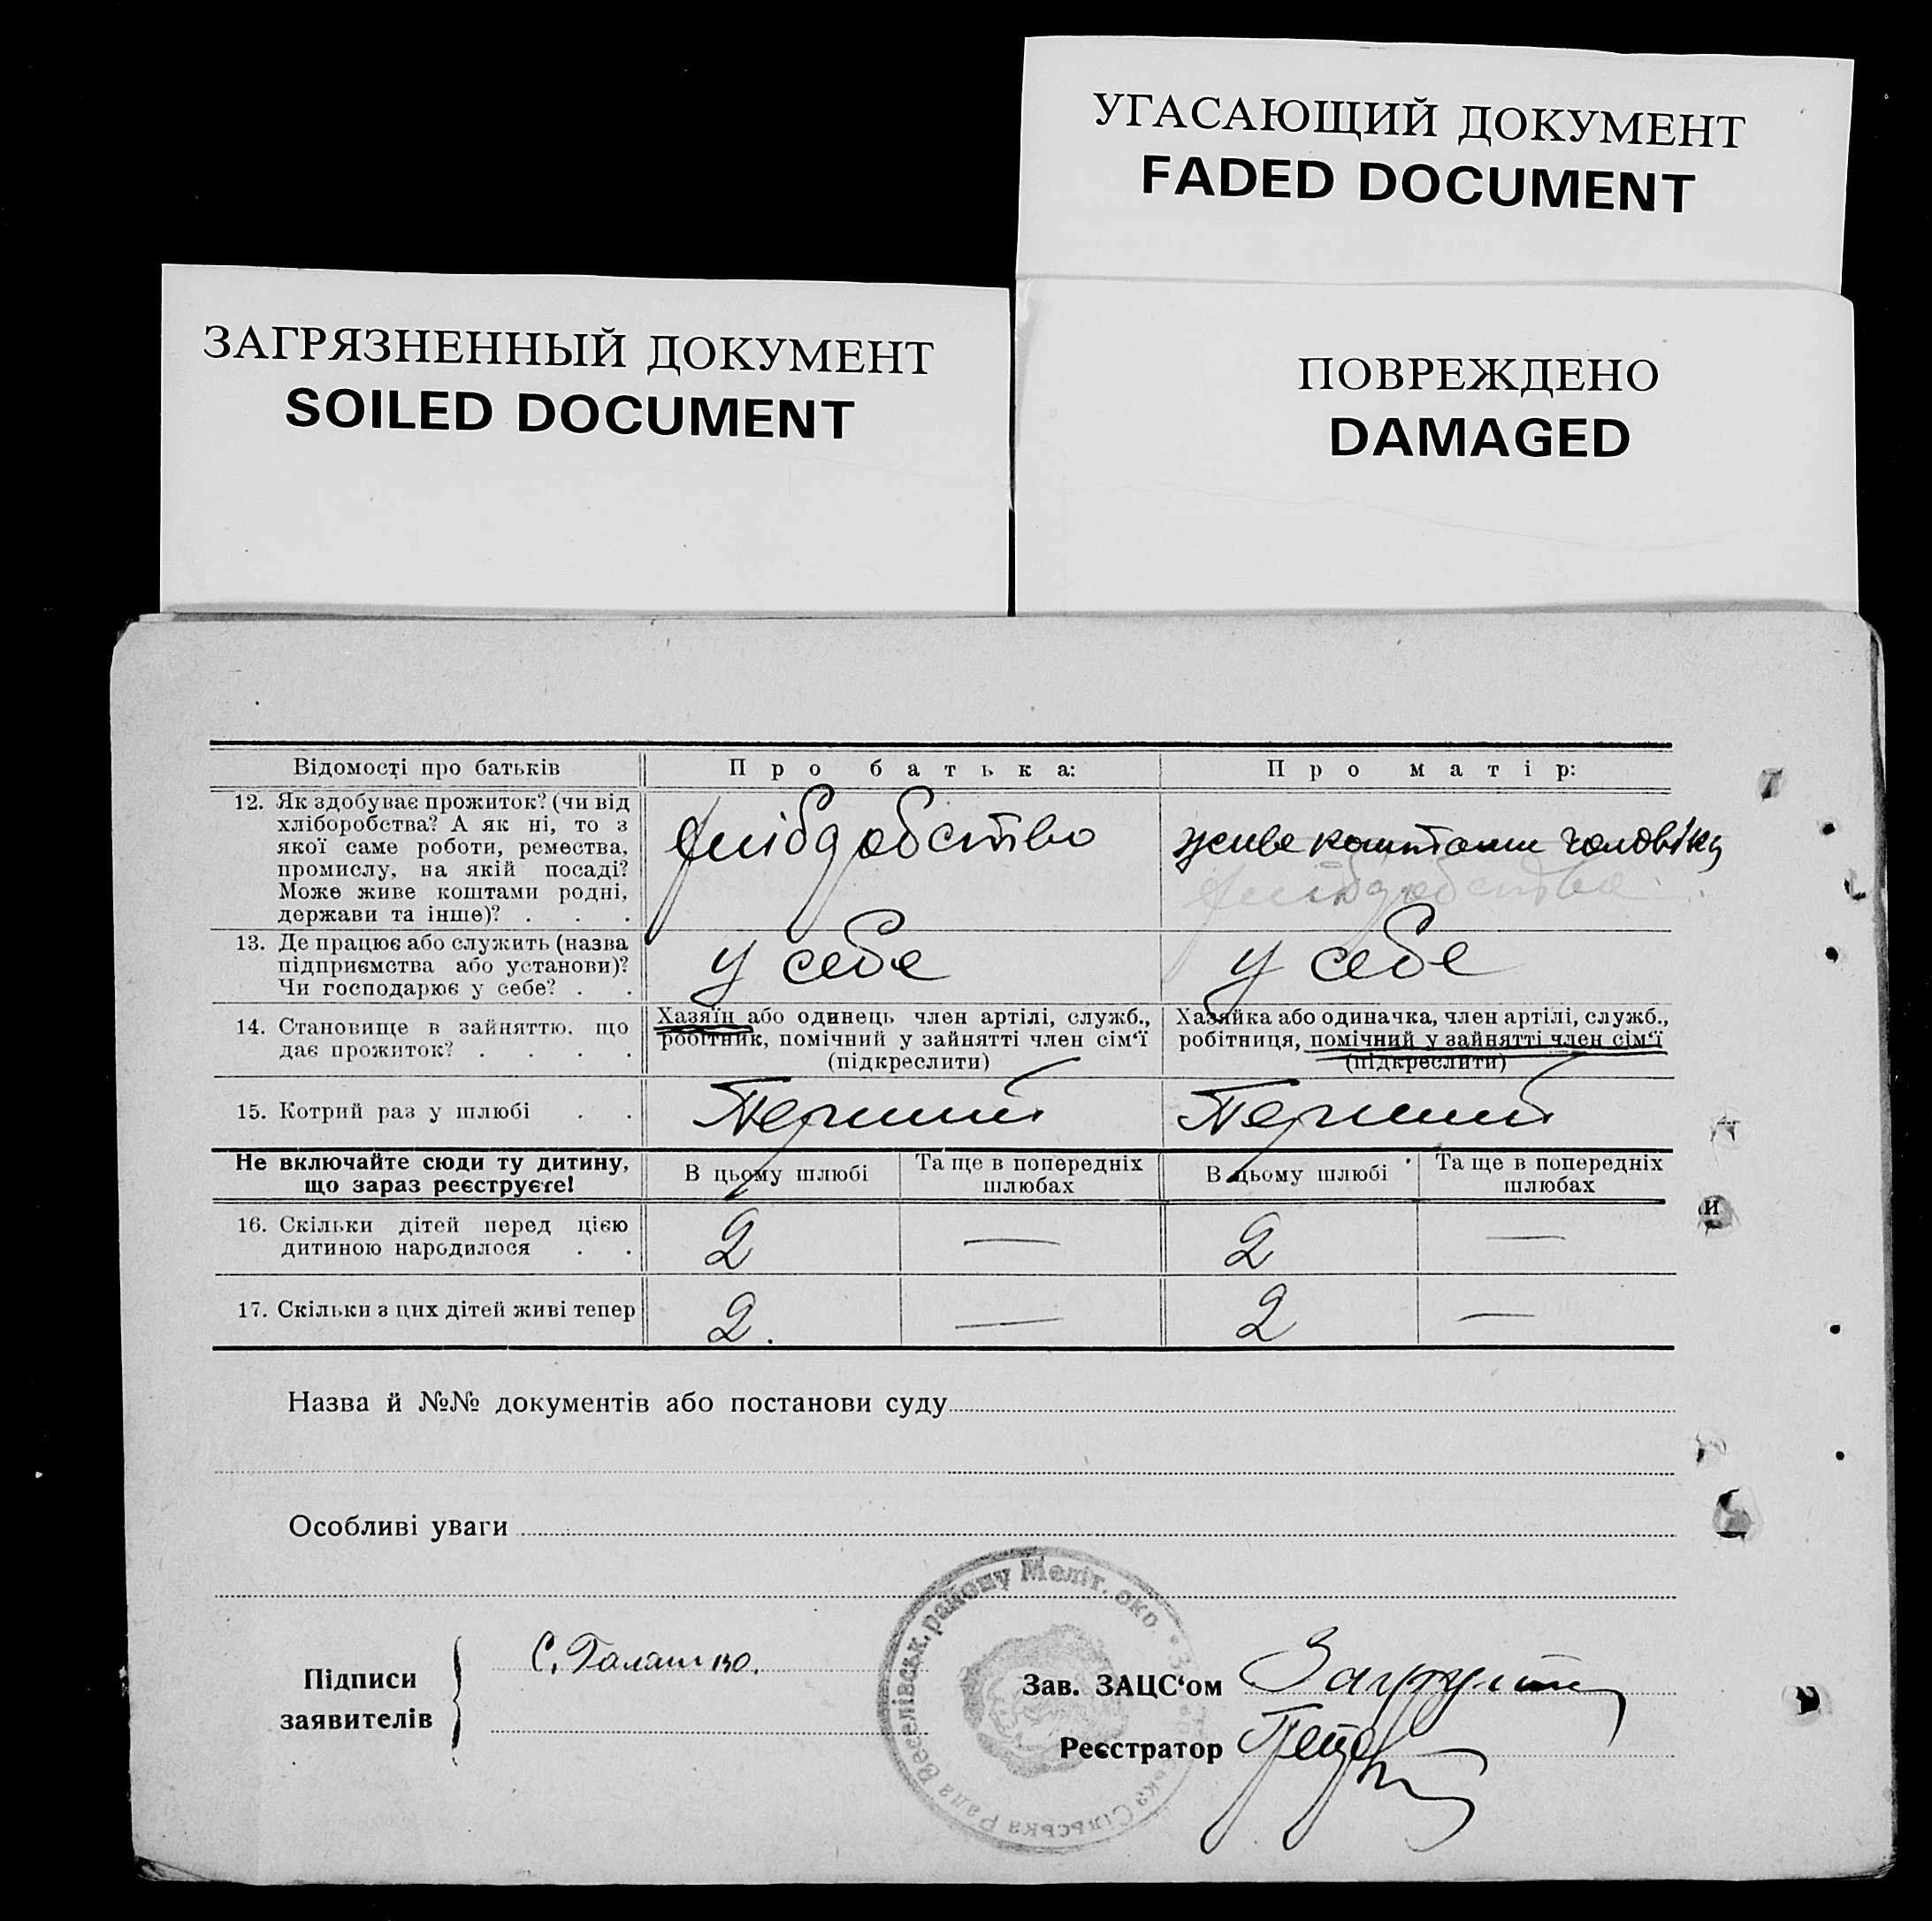 УГАСАЮЩИЙ ДОКУМЕНТ
FADED DOCUMENT
ЗАГРЯЗНЕННЫЙ ДОКУМЕНТ
SOILED DOCUMENT
ПОВРЕЖДЕНО
DAMAGED
Відомості про батьків
Про батька:
Про матір:
12. Як здобуває прожиток? (чи від
хліборобства? А як ні, то з
якої саме роботи, ремества,
промислу, на якій посаді?
Може живе коштами родні,
держави та інше)? . . .
хліборобство
живе коштами чоловіка
хліборобство
13. Де працює або служить (назва
підприємства або установи)?
Чи господарює у себе? . .
у себе
у себе
14. Становище в зайняттю, що
дає прожиток? . . . .
Хазяїн або одинець член артілі, служб.,
робітник, помічний у зайнятті член сім‘ї
(підкреслити)
Хазяйка або одиначка, член артілі, служб.,
робітниця, помічний у зайнятті член сім‘ї
(підкреслити)
15. Котрий раз у шлюбі . .
Перший
Перший
Не включайте сюди ту дитину,
що зараз реєструєте!
В цьому шлюбі
Та ще в попередніх
шлюбах
В цьому шлюбі
Та ще в попередніх
шлюбах
16. Скільки дітей перед цією
дитиною народилося . .
2 — 2 —
17. Скільки з цих дітей живі тепер
2. — 2 —
и
Назва й №№ документів або постанови суду
Особливі уваги
Підписи
заявителів
С.
Зав. ЗАЦС‘ом
Реєстратор
Сільська Рада Веселівськ. району Меліт. окр